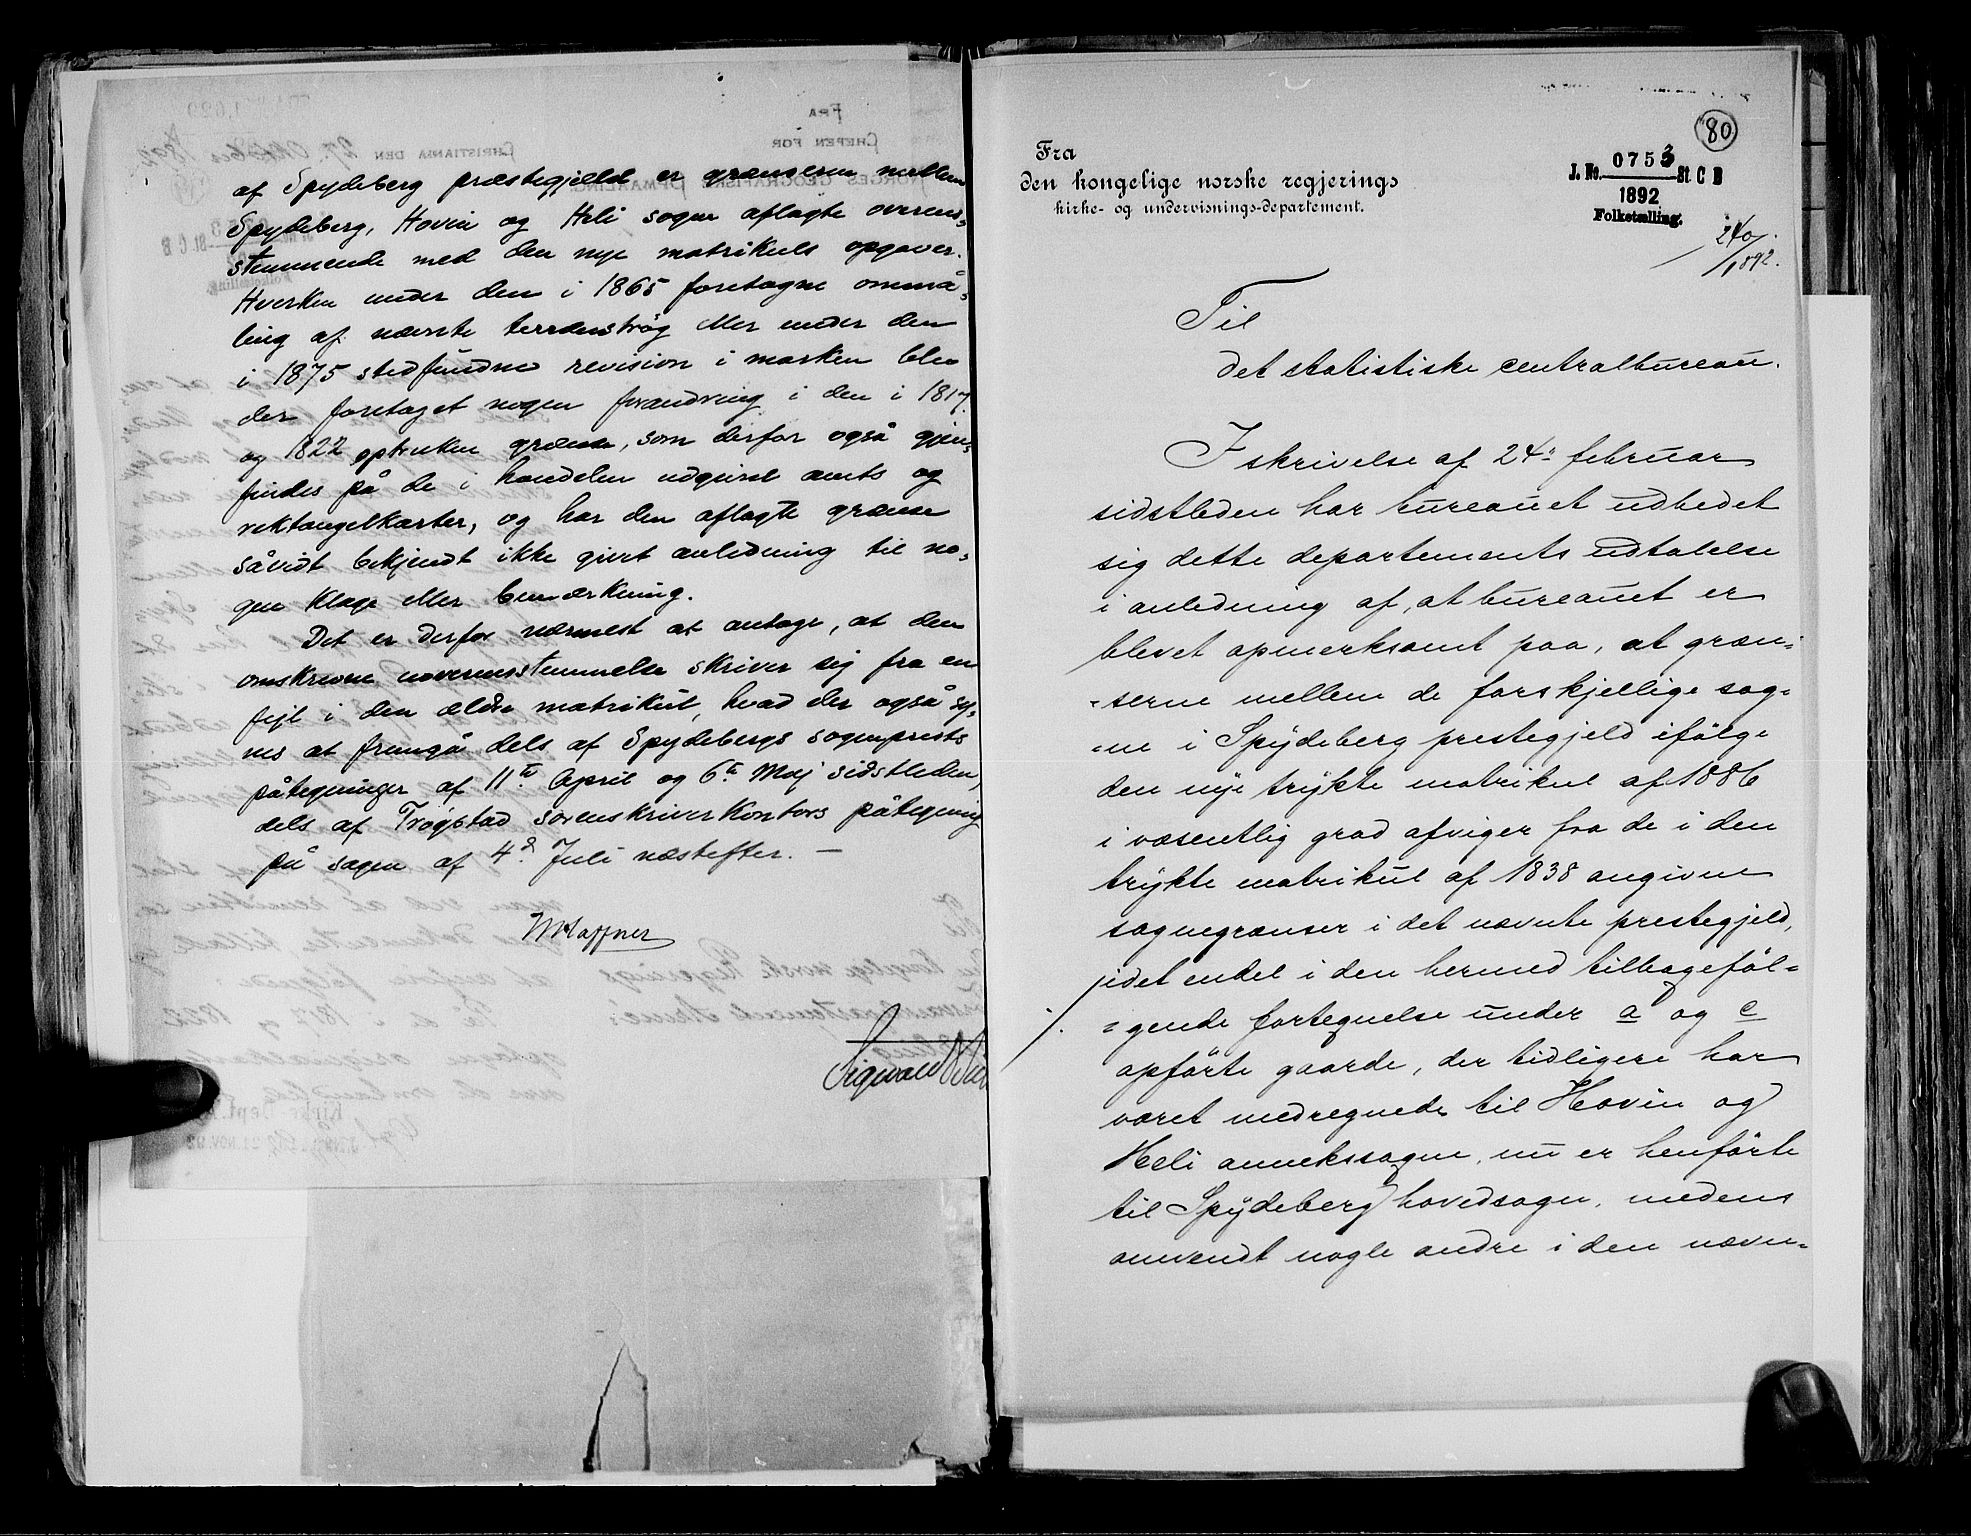 af Spydeberg præstegjeld er grænserne mellem
Spydeberg, Hovin og Heli sogne aflagte overens-
stemmende med den nye matrikuls opgaver.
Hverken under den i 1865 foretagne ommå-
ling af nævnte terrænstrøg eller under den
i 1875 stedfundne revision i marken blev
der foretaget nogen forandring i den i 1817
og 1822 optrukne grænse, som derfor også gjen-
findes på de i handelen udgivne amts og
rektangelkarter, og har den aflagte grænse
såvidt bekjendt ikke givet anledning til no-
gen klage eller bemærkning.
Det er derfor nærmest at antage, at den
omskrevne uoverensstemmelse skriver sig fra en
fejl i den ældre matrikul, hvad der også sy-
nes at fremgå dels af Spydebergs sogneprests
påtegninger af 11te April og 6te Maj sidstleden,
dels af Trøgstad sorenskriverkontors påtegning
på sagen af 4de Juli næstefter. —
Haffner
Sigwald
80
Fra
den kongelige norske regjerings
kirke- og undervisnings-departement.
J. No. 0753 St C B
1892
Folketælling.
1892.
Til
det statistiske centralbureau.
I skrivelse af 24de februar
sidstleden har bureauet udbedet
sig dette departements udtalelse
i anledning af, at bureauet er
blevet opmerksomt paa, at græn-
-serne mellem de forskjellige sog-
-ne i Spydeberg prestegjeld ifølge
den nye trykte matrikul af 1886
i væsentlig grad afviger fra de i den
trykte matrikul af 1838 angivne
sognegrænser i det nævnte prestegjeld,
idet endel i den hermed tilbageføl-
-gende fortegnelse under a og c
opførte gaarde, der tidligere har
været medregnede til Hovin og
Heli annekssogne, nu er henførte
til Spydeberg hovedsogn, medens
omvendt nogle andre i den nævn-